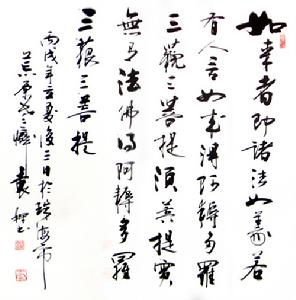 如来者即諸法如義若
有人言如来得阿耨多羅
三藐三菩提須菩提實
無有法佛得阿耨多羅
三藐三菩提
丙戌年立夏後三日於珠海市